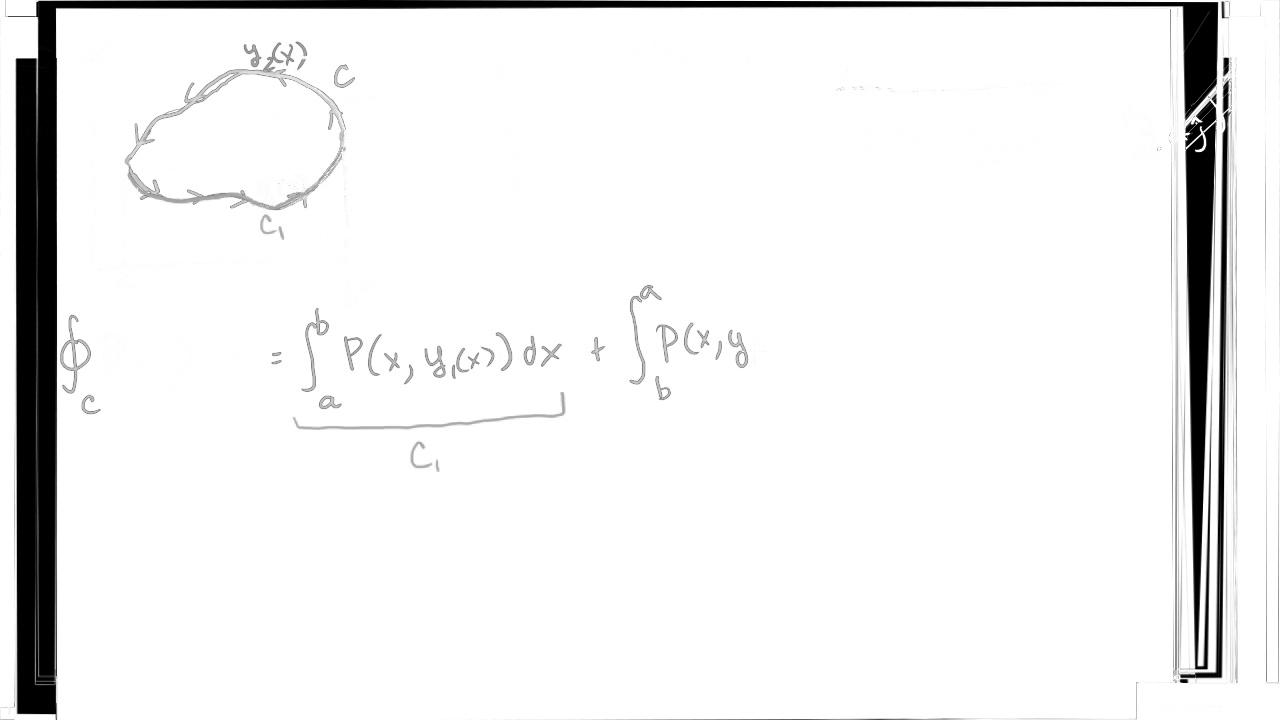 y₂(x)
C
C₁
∮_C = ∫_a^b P(x, y₁(x)) dx + ∫_b^a P(x, y
C₁